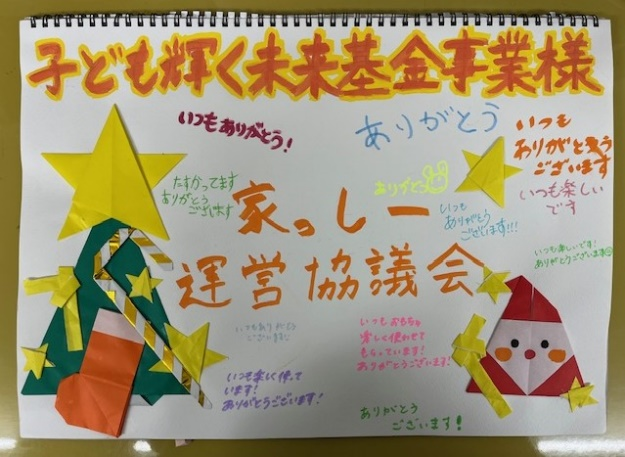 子ども輝く未来基金事業様
いつもありがとう!
ありがとう
いつも
ありがとう
ございます
たすかってます
ありがとう
ございます
ありがとう
いつも楽しい
です
家っしー
いつも
ありがとう
ございます!!!
運営協議会
いつも楽しいです!
ありがとうございます
いつもありがとう
ございます!
いつもおもちゃ
楽しく使わせて
もらっています!
ありがとうございます!
いつも楽しく使って
います!
ありがとうございます!
ありがとう
ございます!